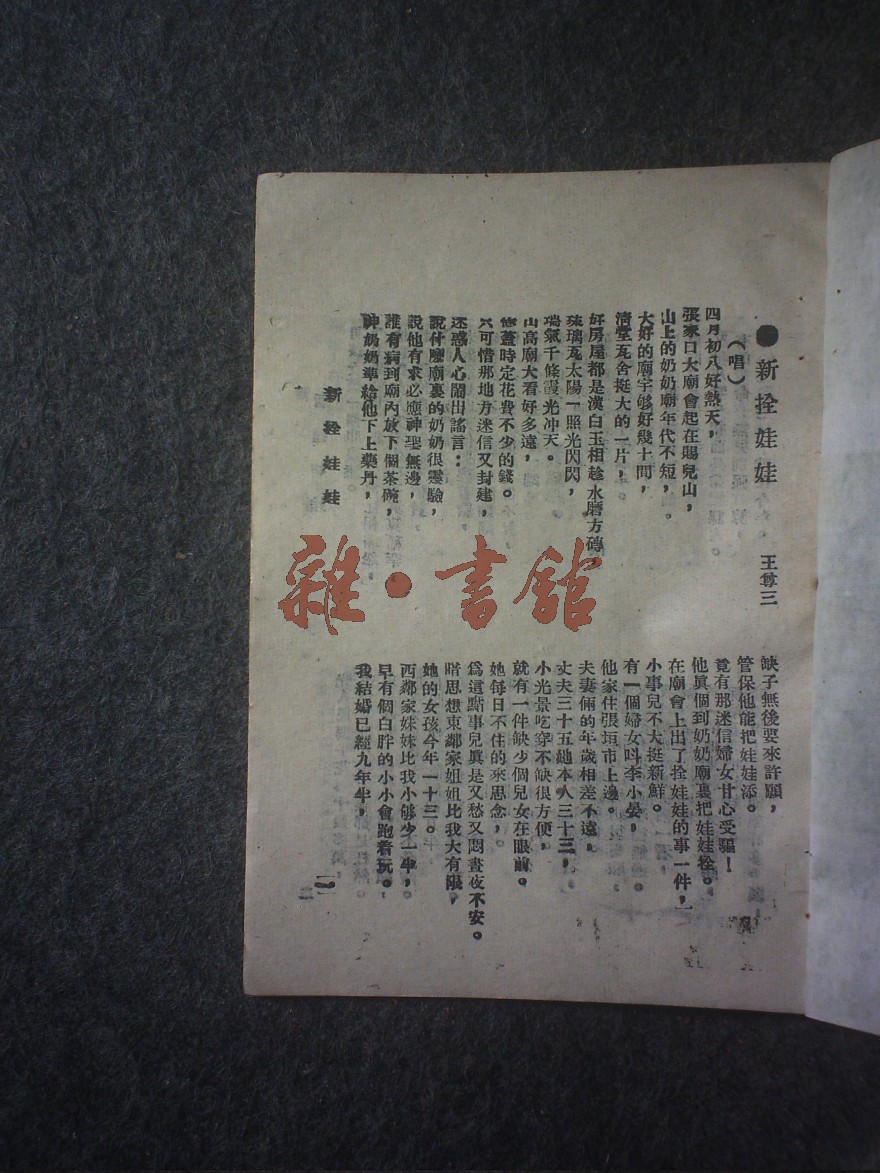 ●新拴娃娃　王尊三
（唱）
四月初八好熱天，
張家口大廟會起在賜兒山，
山上的奶奶廟年代不短，
大好的廟宇够好幾十間，
清堂瓦舍挺大的一片，
好房屋都是漢白玉相趁水磨方磚。
琉璃瓦太陽一照光閃閃，
瑞氣千條霞光冲天。
山高廟大看好多遠，
修蓋時定花費不少的錢。
只可惜那地方迷信又封建，
迷惑人心鬧出謠言：
說什麼廟裏的奶奶很靈驗，
說他有求必應神聖無邊，
誰有病到廟內放下個茶碗，
神奶奶準給他下上藥丹，
缺子無後要來許願，
管保他能把娃娃添。
竟有那迷信婦女甘心受騙！
他眞個到奶奶廟裏把娃娃拴。
在廟會上出了拴娃娃的事一件，
小事兒不大挺新鮮。
有一個婦女呌李小晏，
他家住張垣市上邊。
夫妻倆的年歲相差不遠，
丈夫三十五她本人三十三，
小光景吃穿不缺很方便，
就有一件缺少個兒女在眼前。
她每日不住的來思念，
爲這點事兒眞是又愁又悶晝夜不安。
暗思想東鄰家姐姐比我大有限，
她的女孩今年一十三。
西鄰家妹妹比我小够少一半，
早有個白胖的小小會跑着玩。
我結婚已經九年半，
新拴娃娃
一
雜·書館